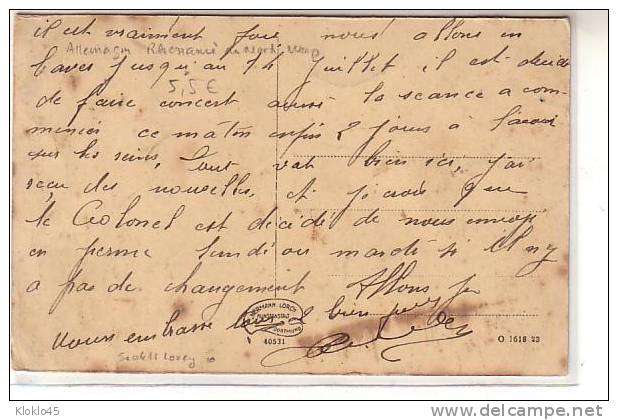 il est vraiment fou nous allons en
Allemagne Rhénanie du Nord
baver jusqu'au 14 Juillet il est décidé
5,5€
de faire concert aussi la séance a com-
mencée ce matin enfin 2 jours à
sur les reins, tout va bien ici, j'ai
reçu des nouvelles, et je crois que
le Colonel est décidé de nous envoyer
en perme lundi ou mardi si il n'y
a pas de changement Allons je
vous embrasse tous 2 bien
HERMANN LORCH
KUNSTANSTALT
DORTMUND
40531
O 1618 23
Kloklo45
delcampe.net